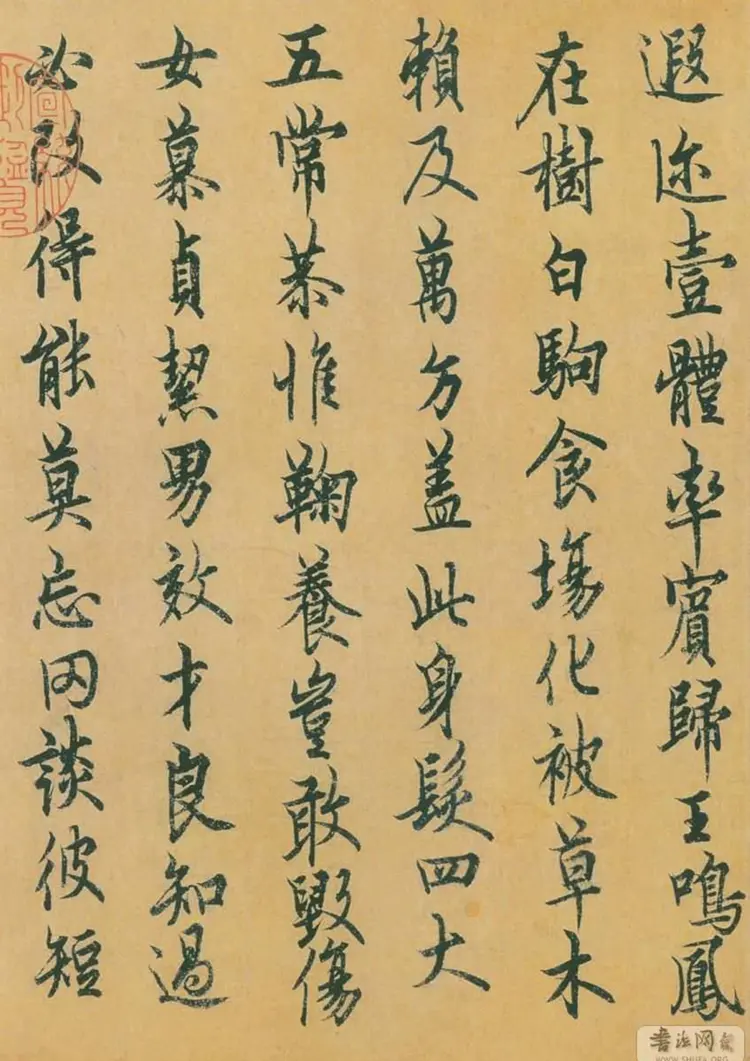 遐迩壹體率賓歸王鳴鳳
在樹白駒食場化被草木
賴及萬方盖此身髮四大
五常恭惟鞠養豈敢毀傷
女慕貞絜男效才良知過
必改得能莫忘罔談彼短
書法网
WWW.SHUFA.COM